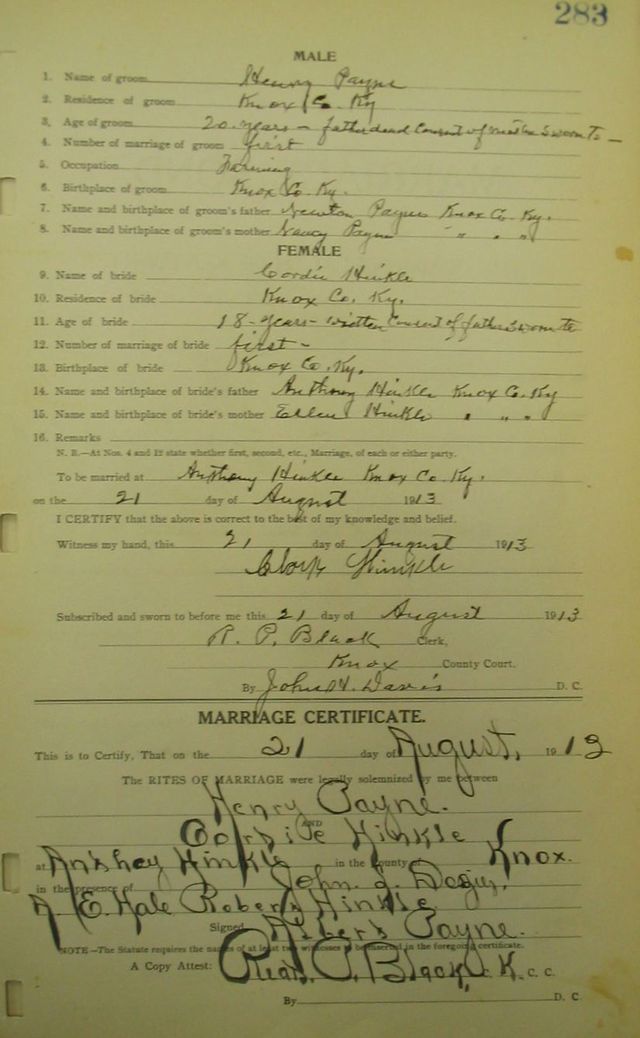 283
MALE
1. Name of groom Henry Payne
2. Residence of groom Knox Co. Ky
3. Age of groom 20 years - father dead Consent of mother Sworn to -
4. Number of marriage of groom first
5. Occupation Farming
6. Birthplace of groom Knox Co. Ky.
7. Name and birthplace of groom's father Newton Payne Knox Co. Ky.
8. Name and birthplace of groom's mother Nancy Payne " " "
FEMALE
9. Name of bride Cordie Hinkle
10. Residence of bride Knox Co. Ky.
11. Age of bride 18 - years - written Consent of father Sworn to
12. Number of marriage of bride first -
13. Birthplace of bride Knox Co. Ky.
14. Name and birthplace of bride's father Anthony Hinkle Knox Co. Ky
15. Name and birthplace of bride's mother Ellen Hinkle " " "
16. Remarks
N. B.—At Nos. 4 and 12 state whether first, second, etc., Marriage, of each or either party.
To be married at Anthony Hinkle Knox Co. Ky.
on the 21 day of August 1913
I CERTIFY that the above is correct to the best of my knowledge and belief.
Witness my hand, this 21 day of August 1913
Clark Hinkle
Subscribed and sworn to before me this 21 day of August 1913
R. P. Black Clerk,
Knox County Court.
By John H. Davis D. C.
MARRIAGE CERTIFICATE.
This is to Certify, That on the 21 day of August, 1913
The RITES OF MARRIAGE were legally solemnized by me between
Henry Payne.
AND
Hinkle
at Hinkle in the County of Knox.
in the presence of John
A. E. Hale Robert Hinkle
Signed Payne.
NOTE—The Statute requires the names of at least two witnesses to be inserted in the foregoing certificate.
A Copy Attest: Read. P. Black C. K. C. C.
By D. C.